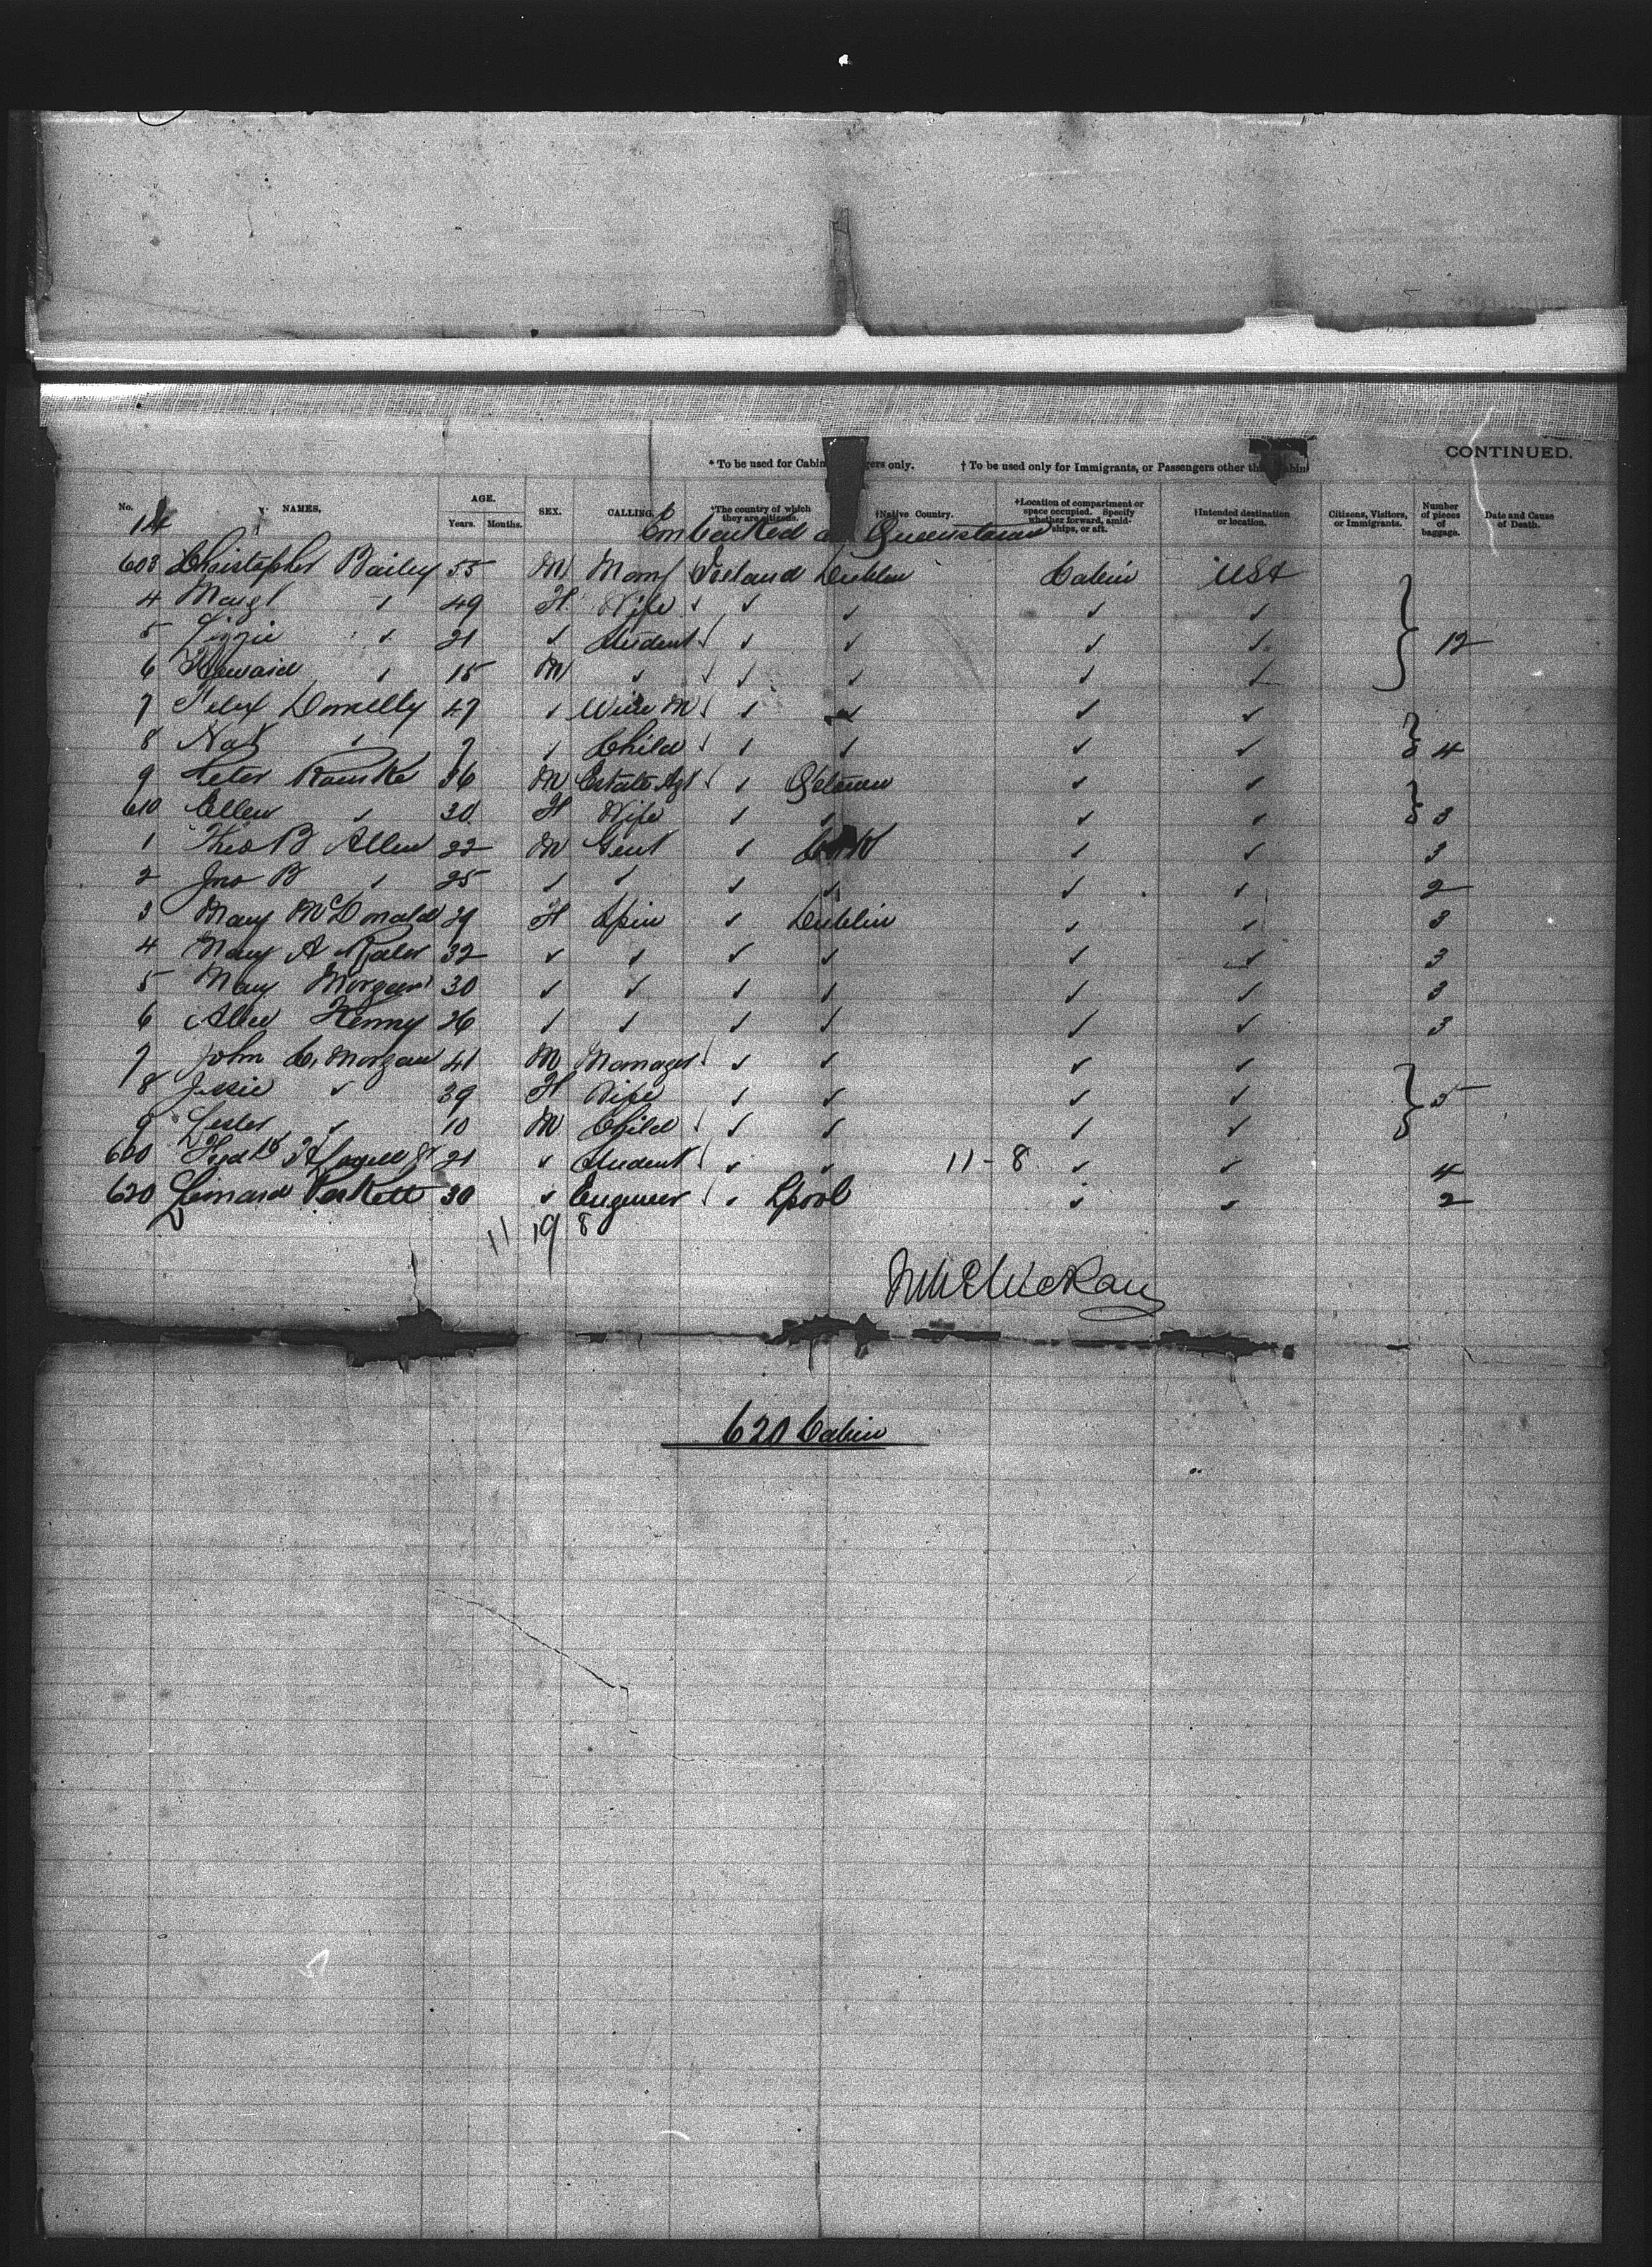 CONTINUED.
* To be used for Cabin gers only. † To be used only for Immigrants, or Passengers other th Cabin
No. NAMES. AGE. Years. Months. SEX. CALLING. *The country of which they are citizens. †Native Country. †Location of compartment or space occupied. Specify whether forward, amidships, or aft. †Intended destination or location. Citizens, Visitors, or Immigrants. Number of pieces of baggage. Date and Cause of Death.
14 Embarked a Queenstown
603 Christopher Bailey 55 M Ireland Dublin Cabin USA
4 Margt ✓ 49 F Wife ✓ ✓ ✓ ✓ ✓
5 Lizzie ✓ 21 ✓ Student ✓ ✓ ✓ ✓ 12
6 Howard ✓ 15 M ✓ ✓ ✓ ✓ ✓
7 Felix Donnelly 47 ✓ Wine M ✓ ✓ ✓ ✓
8 Nat ✓ 7 ✓ Child ✓ ✓ ✓ ✓ 4
9 Peter Rourke 36 M Estate Agt ✓ ✓ ✓
610 Ellen ✓ 30 F Wife ✓ ✓ ✓ ✓ 3
1 Theo B Allen 22 M Gent ✓ Cork ✓ ✓ 3
2 Jno B ✓ 25 ✓ ✓ ✓ ✓ ✓ ✓ 2
3 Mary McDonald 29 F Spin ✓ Dublin ✓ ✓ 3
4 Mary A 32 ✓ ✓ ✓ ✓ ✓ ✓ 3
5 Mary Morgan 30 ✓ ✓ ✓ ✓ ✓ ✓ 3
6 Alice Kenny 26 ✓ ✓ ✓ ✓ ✓ ✓ 3
7 John C. Morgan 41 M Manager ✓ ✓ ✓ ✓
8 Jessie ✓ 39 F Wife ✓ ✓ ✓ ✓ 5
9 Lester ✓ 10 M Child ✓ ✓ ✓ ✓
Fredk 21 ✓ Student ✓ ✓ 11-8 ✓ ✓ 4
620 Leonard 30 ✓ Engineer ✓ Lpool ✓ ✓ 2
11 19 8
620 Cabin